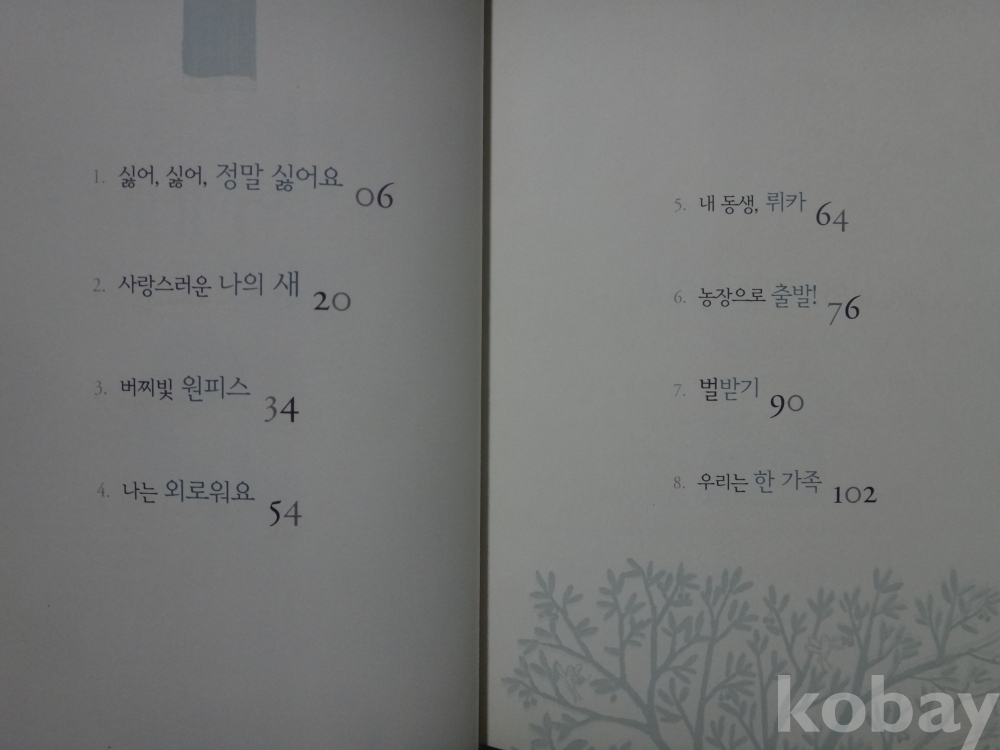 1. 싫어, 싫어, 정말 싫어요 06
2. 사랑스러운 나의 새 20
3. 버찌빛 원피스 34
4. 나는 외로워요 54
5. 내 동생, 뤼카 64
6. 농장으로 출발! 76
7. 벌받기 90
8. 우리는 한 가족 102
kobay